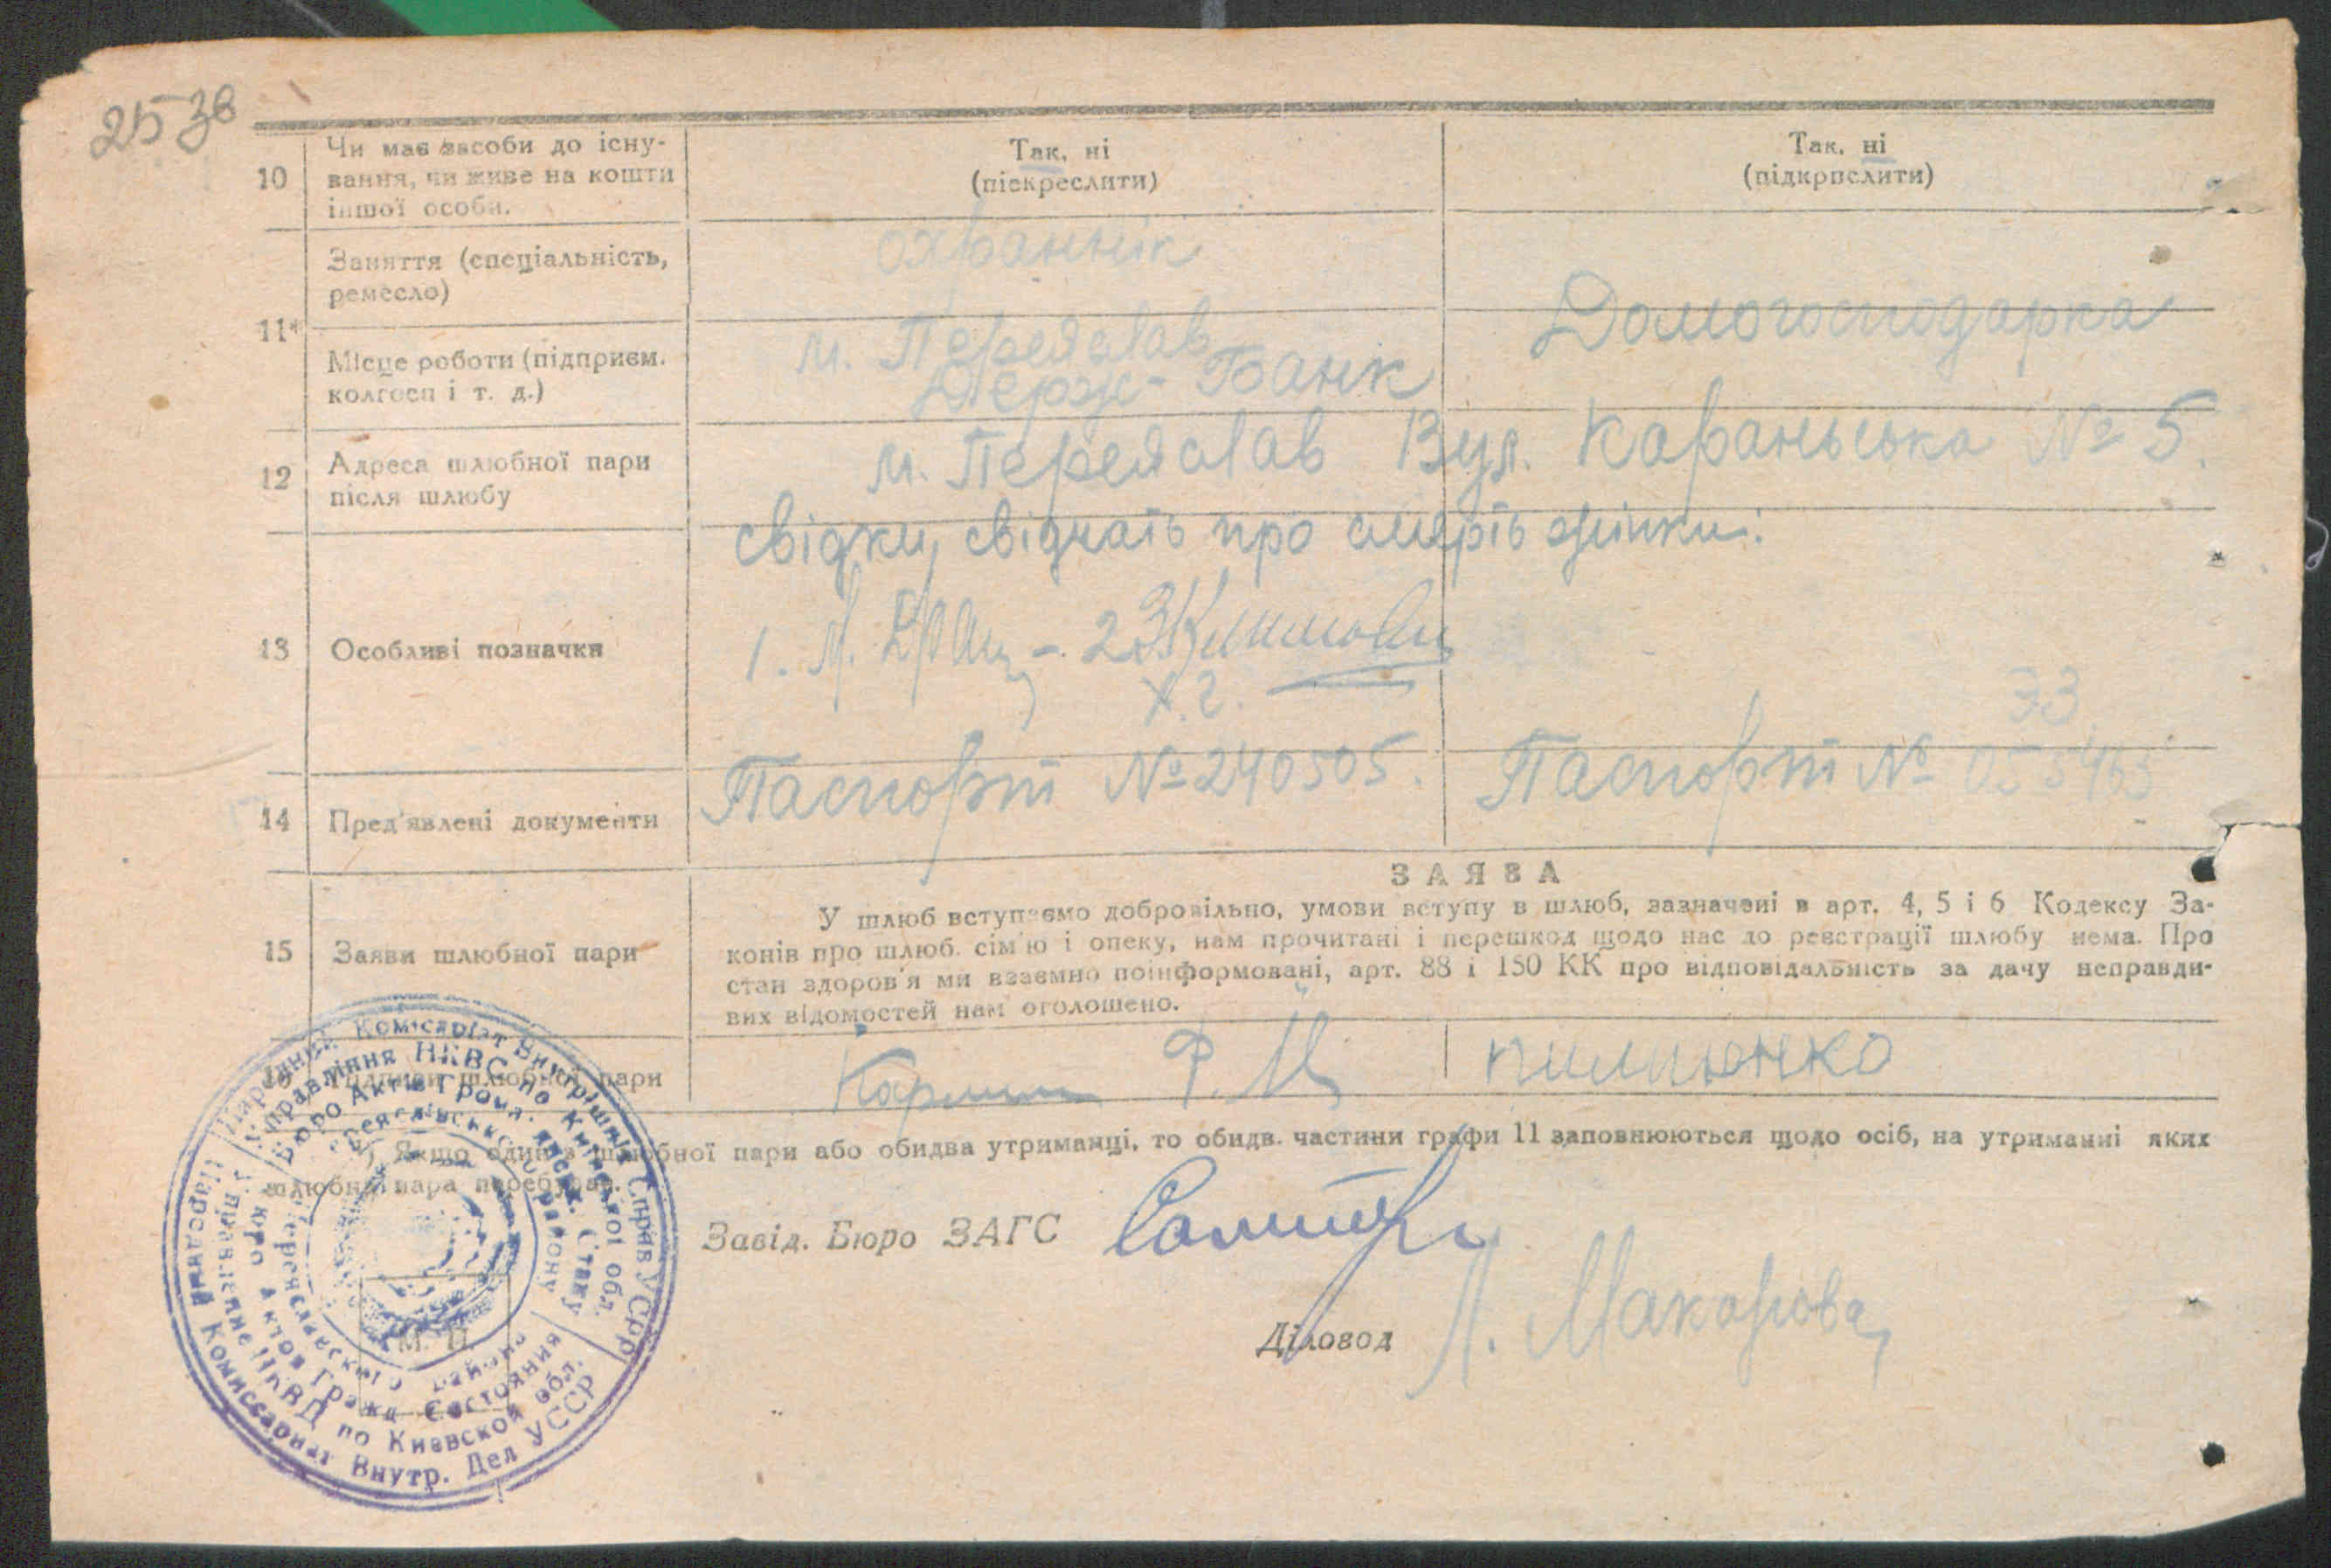 25 зв
10
Чи має засоби до існу-
вання, чи живе на кошти
іншої особи.
Так, ні
(піекреслити)
Так, ні
(підкрпслити)
11*
Заняття (спеціальність,
ремесло)
охраннік
Домогосподарка
Місце роботи (підприєм.
колгосп і т. д.)
м. Переяслав
Держ-Банк
12
Адреса шлюбної пари
після шлюбу
м. Переяслав Вул. Караньська № 5.
13
Особливі позначки
свідки, свідчать про смерть жінки:
1. 2
Х. Г.
14
Пред'явлені документи
Паспорт № 240505.
ЭЗ
Паспорт №
15
Заяви шлюбної пари
ЗАЯВА
У шлюб вступаємо добровільно, умови вступу в шлюб, зазначені в арт. 4, 5 і 6 Кодексу За-
конів про шлюб, сім'ю і опеку, нам прочитані і перешкод щодо нас до реєстрації шлюбу нема. Про
стан здоров'я ми взаємно поінформовані, арт. 88 і 150 КК про відповідальність за дачу неправди-
вих відомостей нам оголошено.
16
Підписи шлюбної пари
Ф. М.
пилипенко
*) Якщо один з шлюбної пари або обидва утриманці, то обидв. частини графи 11 заповнюються щодо осіб, на утриманні яких
шлюбна пара перебуває.
Завід. Бюро ЗАГС
Діловод Л. Макарова
М. П.
Народний Комісаріят Внутрішніх Справ УСРР
Управління НКВС по Київській обл.
Бюро Актів Гром. Стану
району
Народный Комиссариат Внутр. Дел УССР
Управление НКВД по Киевской обл.
Бюро Актов Гражд. Состояния
Переяславского района